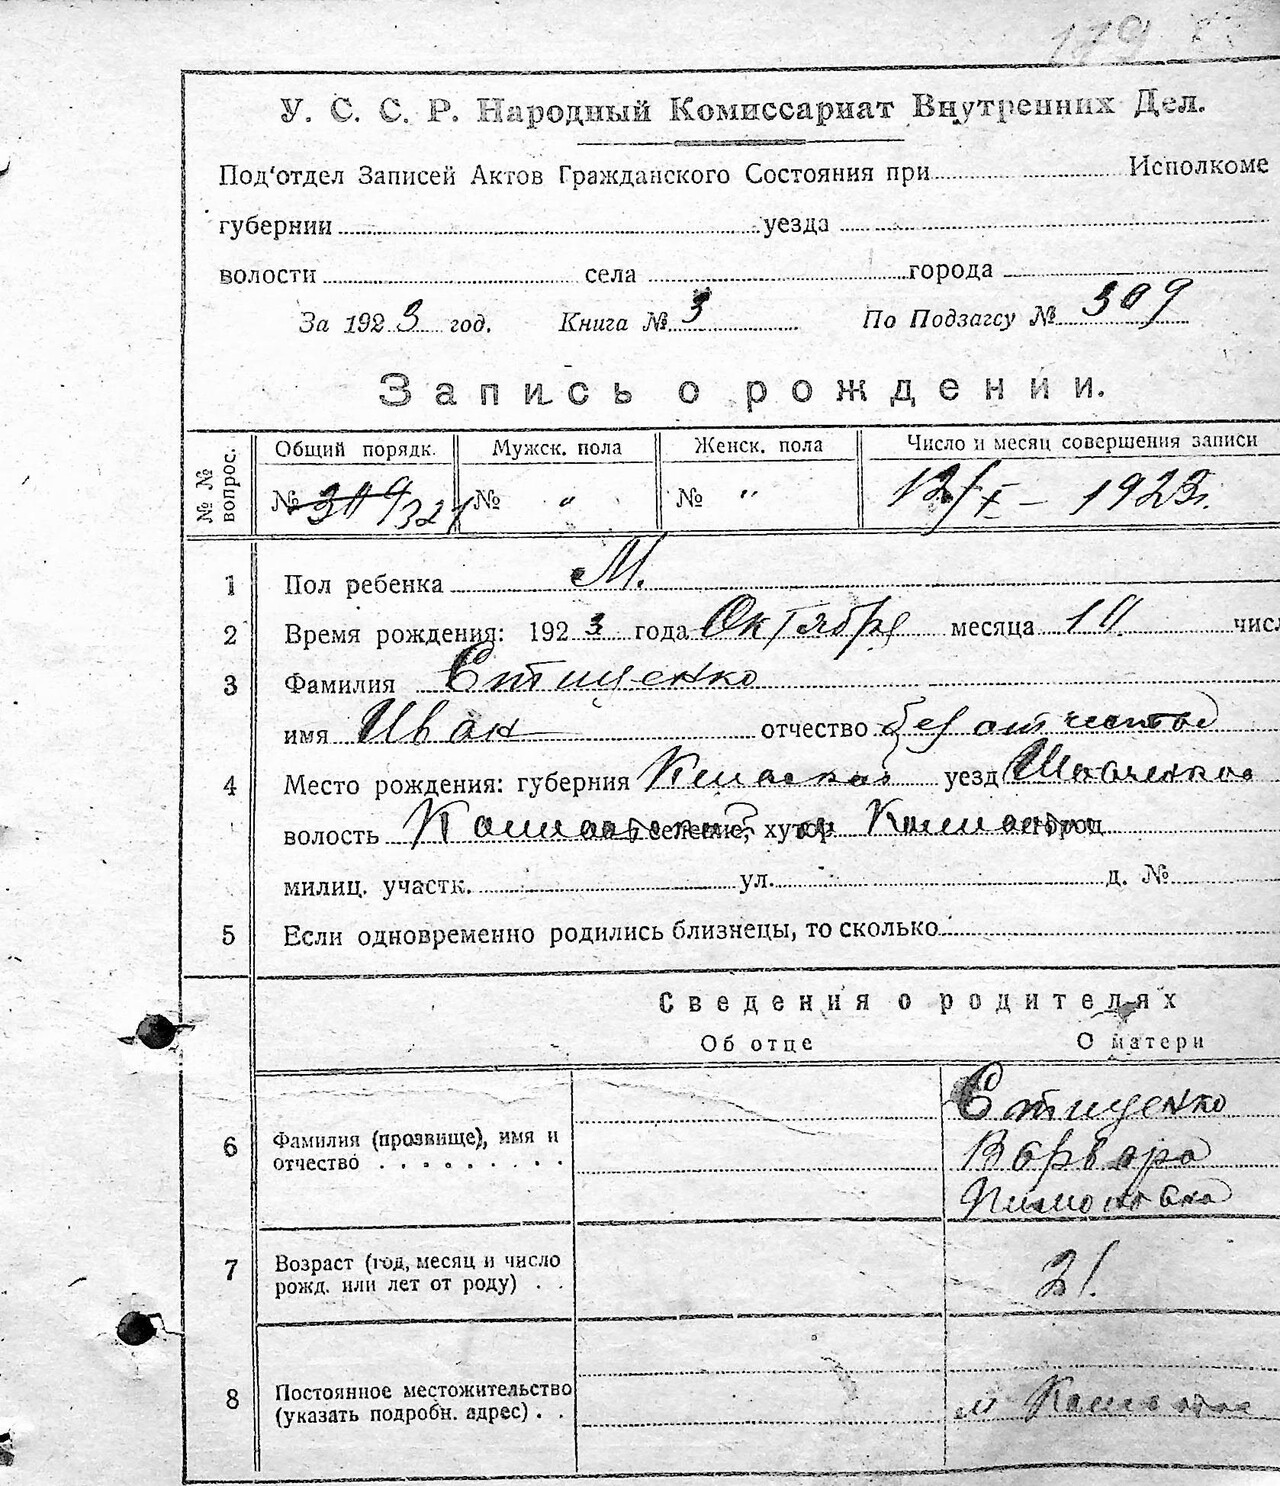 179
У. С. С. Р. Народный Комиссариат Внутренних Дел.
Под'отдел Записей Актов Гражданского Состояния при Исполкоме
губернии уезда
волости села города
За 1923 год. Книга № 3 По Подзагсу № 309
Запись о рождении.
№ № вопрос.
Общий порядк. Мужск. пола Женск. пола Число и месяц совершения записи
№ 309/321 № " № " 12/X – 1923г.
1 Пол ребенка М.
2 Время рождения: 1923 года Октября месяца 10 числ
3 ФамилияЕтищенко
имя Иван отчество без отчества
4 Место рождения: губерния Киевская уезд Шевченков
волость селение, хутор город
милиц. участк. ул. д. №
5 Если одновременно родились близнецы, то сколько
Сведения о родителях
Об отце О матери
6 Фамилия (прозвище), имя и отчество Етищенко
Варвара
7 Возраст (год, месяц и число рожд. или лет от роду) 21.
8 Постоянное местожительство (указать подробн. адрес) м